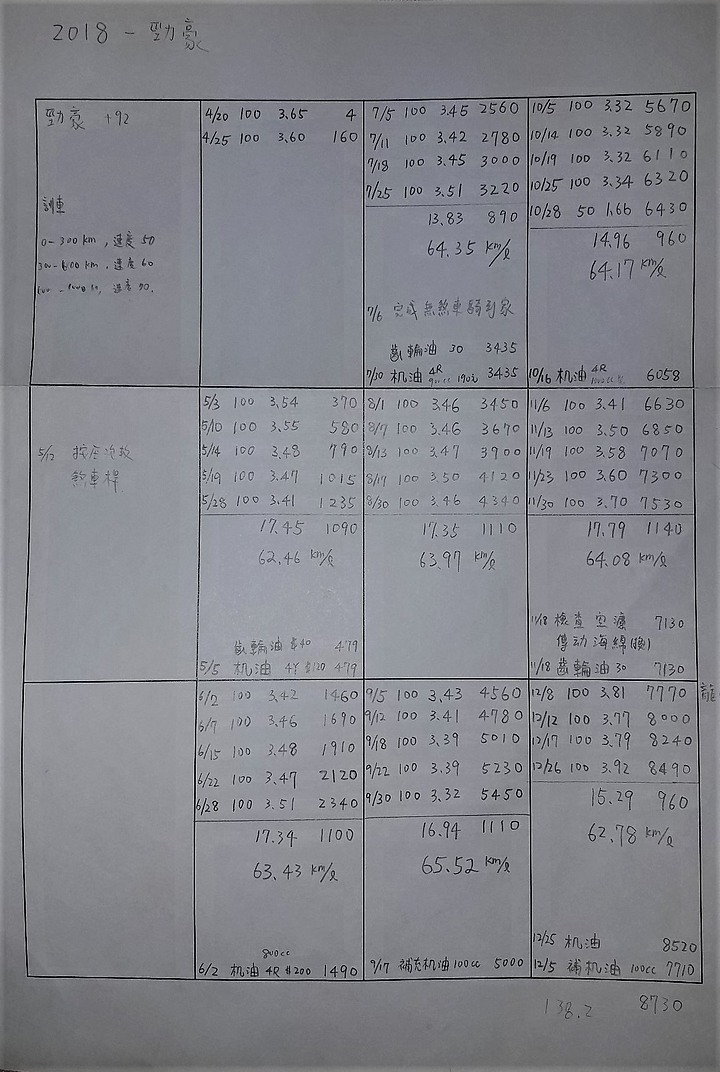 2018 - 勁豪
勁豪 +92
訓車
0-300 km, 速度 50
300-600 km, 速度 60
4/20 100 3.65 4
4/25 100 3.60 160
7/5 100 3.45 2560
7/11 100 3.42 2780
7/18 100 3.45 3000
7/25 100 3.51 3220
13.83 890
64.35 km/ℓ
7/6 完成無煞車騎到家
齒輪油 30 3435
7/30 机油 4R 900cc 190元 3435
10/5 100 3.32 5670
10/14 100 3.32 5890
10/19 100 3.32 6110
10/25 100 3.34 6320
10/28 50 1.66 6430
14.96 960
64.17 km/ℓ
10/16 机油 4R 1000cc 6058
5/12
煞車桿
5/3 100 3.54 370
5/10 100 3.55 580
5/14 100 3.48 790
5/19 100 3.47 1015
5/28 100 3.41 1235
17.45 1090
62.46 km/ℓ
齒輪油 $40 479
5/5 机油 4Y $120 479
8/1 100 3.46 3450
8/7 100 3.46 3670
8/13 100 3.47 3900
8/17 100 3.50 4120
8/30 100 3.46 4340
17.35 1110
63.97 km/ℓ
11/6 100 3.41 6630
11/13 100 3.50 6850
11/19 100 3.58 7070
11/23 100 3.60 7300
11/30 100 3.70 7530
17.79 1140
64.08 km/ℓ
11/18 檢查空濾 7130
傳动海綿(換)
11/18 齒輪油 30 7130
6/2 100 3.42 1460
6/7 100 3.46 1690
6/15 100 3.48 1910
6/22 100 3.47 2120
6/28 100 3.51 2340
17.34 1100
63.43 km/ℓ
800cc
6/2 机油 4R $200 1490
9/5 100 3.43 4560
9/12 100 3.41 4780
9/18 100 3.39 5010
9/22 100 3.39 5230
9/30 100 3.32 5450
16.94 1110
65.52 km/ℓ
9/17 補充机油 100cc 5000
12/8 100 3.81 7770
12/12 100 3.77 8000
12/17 100 3.79 8240
12/26 100 3.92 8490
15.29 960
62.78 km/ℓ
12/25 机油 8520
12/5 補机油 100cc 7710
138.2 8730